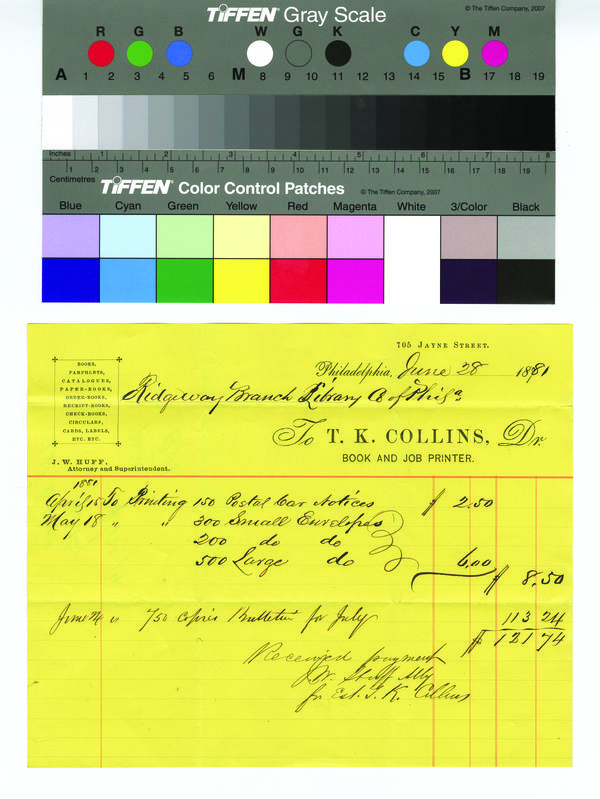 TIFFEN® Gray Scale
© The Tiffen Company, 2007
R G B W G K C Y M
A 1 2 3 4 5 6 M 8 9 10 11 12 13 14 15 B 17 18 19
Inches 1 2 3 4 5 6 7 8
Centimetres 1 2 3 4 5 6 7 8 9 10 11 12 13 14 15 16 17 18 19
TIFFEN® Color Control Patches
© The Tiffen Company, 2007
Blue Cyan Green Yellow Red Magenta White 3/Color Black
705 JAYNE STREET.
Philadelphia, June 28 1881
BOOKS,
PAMPHLETS,
CATALOGUES,
PAPER-BOOKS,
ORDER-BOOKS,
RECEIPT-BOOKS,
CHECK-BOOKS,
CIRCULARS,
CARDS, LABELS,
ETC. ETC.
Ridgeway Branch Library Co of Phila
To T. K. COLLINS, Dr.
BOOK AND JOB PRINTER.
J. W. HUFF,
Attorney and Superintendent.
1881
April 15 To Printing 150 Postal Car Notices $ 2.50
May 18 " " 300 Small Envelopes
200 do do
500 Large do 6.00
$ 8.50
June 24 " 750 copies Bulletin for July 113 24
$ 121 74
Received payment
J.W. Huff Atty
for Est. T. K. Collins